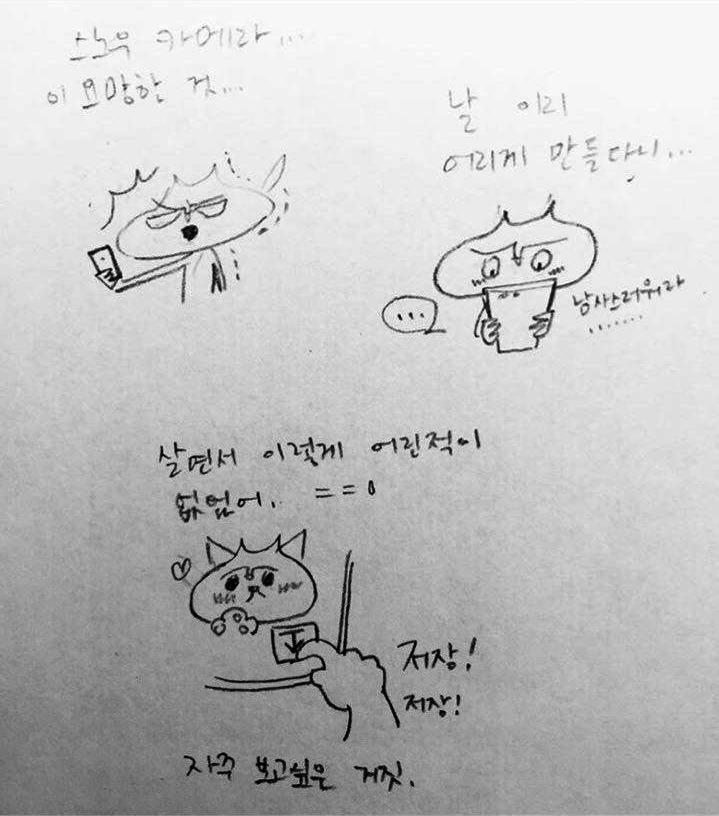 스노우 카메라...
이 요망한 것...
날 이리
어리게 만들다니...
...
남사스러워라
.......
살면서 이렇게 어린적이
없었어. ==0
저장!
저장!
자주 보고싶은 거짓.